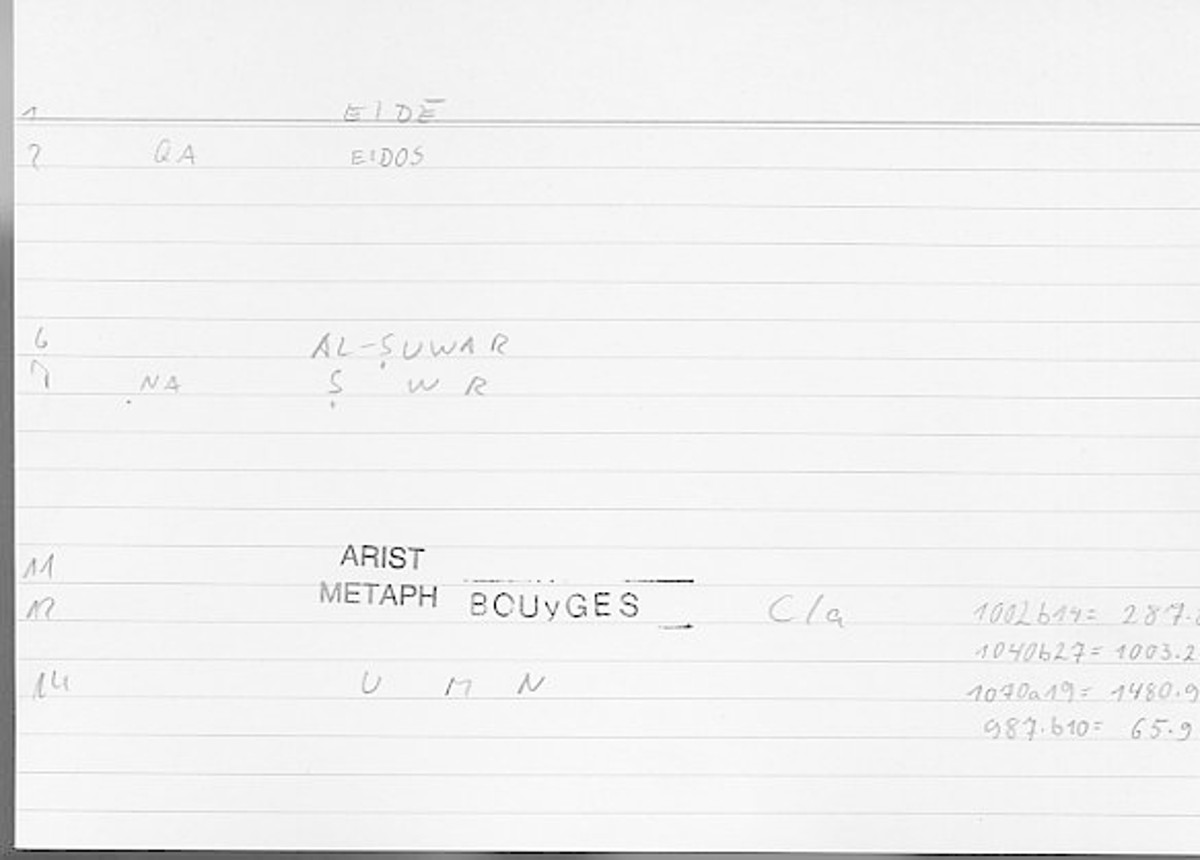 1 EIDĒ
2 QA EIDOS
6 AL-ṢUWAR
7 NA Ṣ W R
11 ARIST
12 METAPH BOUyGES C/a 1002b14= 287.
1040b27= 1003.2
14 U M N 1070a19= 1480.9
987.b10= 65.9